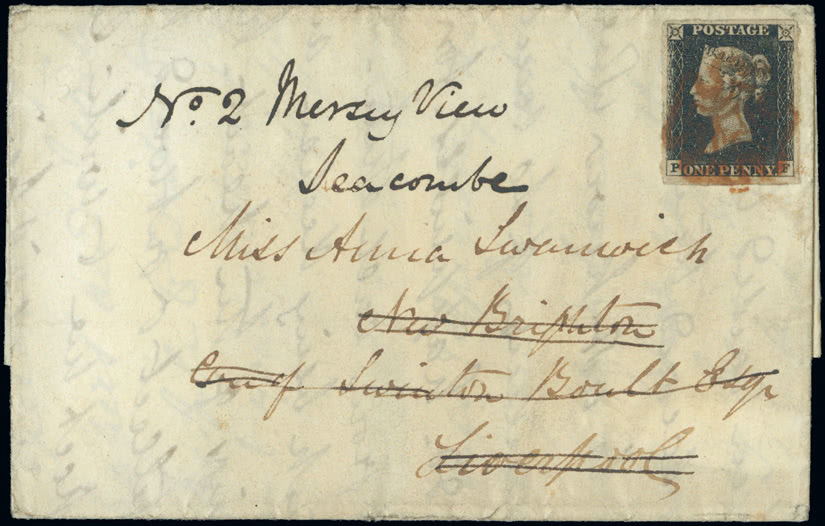 POSTAGE
P F
ONE PENNY
No. 2 Mersey View
Seacombe
Miss Anna Swanwick
New Brighton
Swinton Boult Esqr
Liverpool